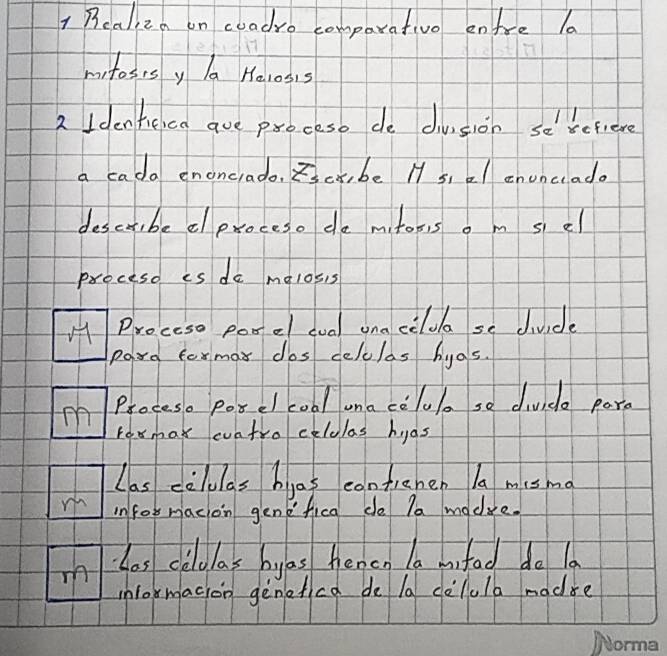 1 Realiza un cuadro comparativo entre la
mitosis y la Meiosis
2 Identifica que proceso de división se refiere
a cada enunciado. Escribe M si el enunciado
describe el proceso de mitosis o m si el
proceso es de meiosis
M Proceso por el cual una célula se divide
para formar dos celulas hijas.
m Proceso por el cual una célula se divide para
formar cuatro celulas hijas
m Las células hijas contienen la misma
información genética de la madre.
m Las células hijas tienen la mitad de la
información génetica de la célula madre
Norma